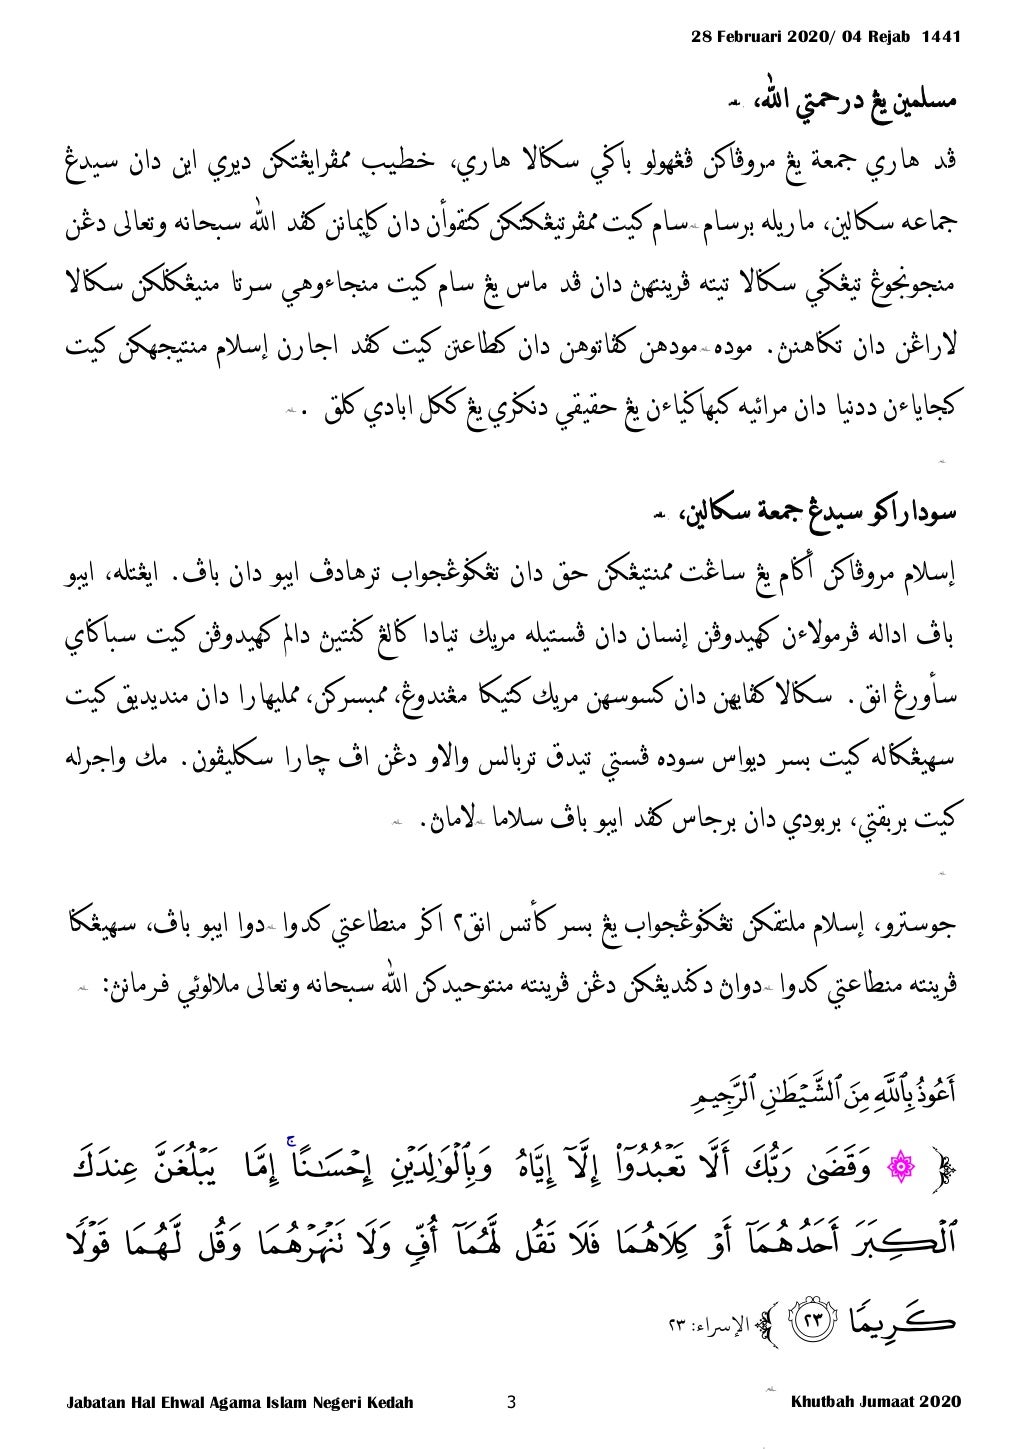 28 Februari 2020/ 04 Rejab 1441
مسلمين يڠ درحمتي الله،
ڤد هاري جمعة يڠ مروڤاكن ڤڠهولو باݢي سݢالا هاري، خطيب ممڤرايڠتكن ديري اين دان سيدڠ
جماعه سكالين، ماريله برسام-سام كيت ممڤرتيڠكتكن كتقوأن دان كإيمانن كڤد الله سبحانه وتعالى دڠن
منجونجوڠ تيڠݢي سݢالا تيته ڤرينتهڽ دان ڤد ماس يڠ سام كيت منجاءوهي سرتا منيڠݢلكن سݢالا
لارڠن دان تݢاهنڽ. موده-مودهن كڤاتوهن دان كطاعتن كيت كڤد اجارن إسلام منتيجهكن كيت
كجاياءن ددنيا دان مرائيه كبهاݢياءن يڠ حقيقي دنݢري يڠ ككل ابادي كلق .
سوداراكو سيدڠ جمعة سكالين،
إسلام مروڤاكن أݢام يڠ ساڠت ممنتيڠكن حق دان تڠݢوڠجواب ترهادڤ ايبو دان باڤ. ايڠتله، ايبو
باڤ اداله ڤرمولاءن كهيدوڤن إنسان دان ڤستيله مريك تيادا ݢالڠ ݢنتيڽ دالم كهيدوڤن كيت سباݢاي
سأورڠ انق. سݢالا كڤايهن دان كسوسهن مريك كتيكا مڠندوڠ، ممبسركن، ممليهارا دان منديديق كيت
سهيڠݢاله كيت بسر ديواس سوده ڤستي تيدق تربالس والاو دڠن اڤ چارا سكليڤون. مك واجبله
كيت بربقتي، بربودي دان برجاس كڤد ايبو باڤ سلاما-لاماڽ.
جوسترو، إسلام ملتقكن تڠݢوڠجواب يڠ بسر كأتس انق٢ اݢر منطاعتي كدوا-دوا ايبو باڤ، سهيڠݢا
ڤرينته منطاعتي كدوا-دواڽ دݢنديڠكن دڠن ڤرينته منتوحيدكن الله سبحانه وتعالى ملالوئي فرمانڽ:
أَعُوذُ بِٱللَّهِ مِنَ ٱلشَّيْطَٰنِ ٱلرَّجِيمِ
﴿ ۞ وَقَضَىٰ رَبُّكَ أَلَّا تَعْبُدُوٓا۟ إِلَّآ إِيَّاهُ وَبِٱلْوَٰلِدَيْنِ إِحْسَٰنًا ۚ إِمَّا يَبْلُغَنَّ عِندَكَ
ٱلْكِبَرَ أَحَدُهُمَآ أَوْ كِلَاهُمَا فَلَا تَقُل لَّهُمَآ أُفٍّ وَلَا تَنْهَرْهُمَا وَقُل لَّهُمَا قَوْلًا
كَرِيمًا ٢٣ ﴾ الإسراء: ٢٣
Jabatan Hal Ehwal Agama Islam Negeri Kedah 3 Khutbah Jumaat 2020